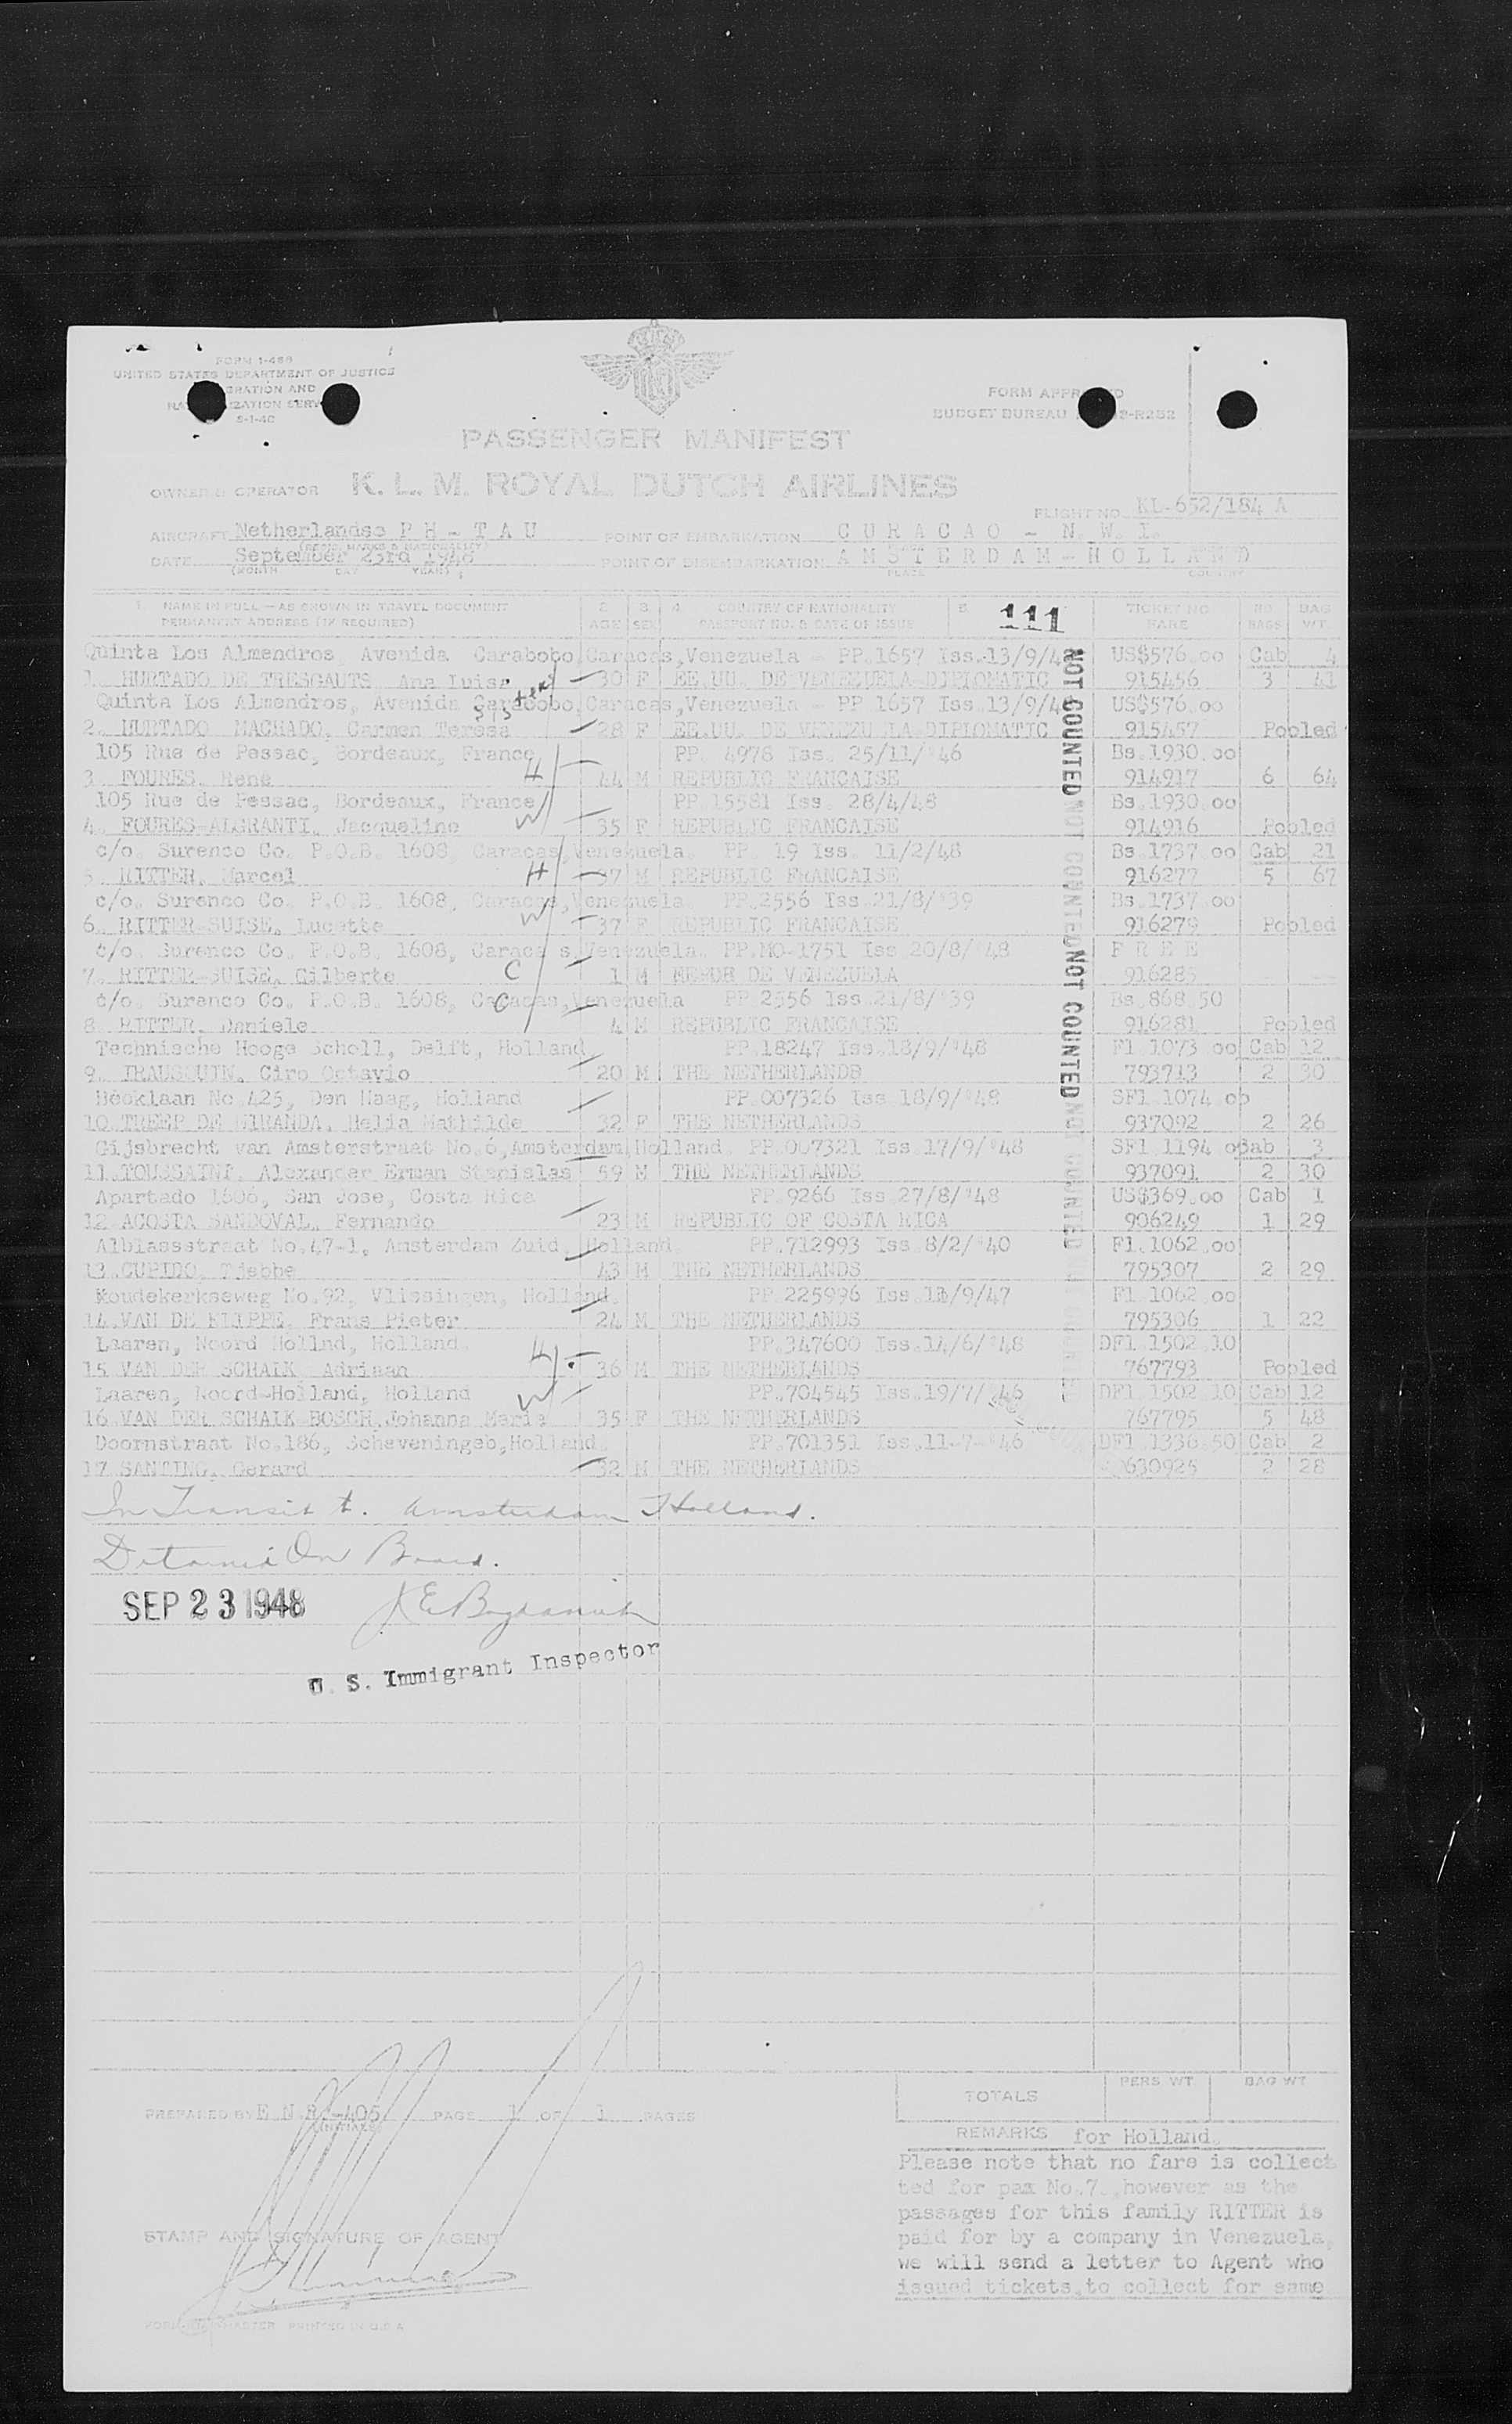 FORM I-466
UNITED STATES DEPARTMENT OF JUSTICE
FORM
BUDGET BUREAU
PASSENGER MANIFEST
OWNER & OPERATOR K. L. M. ROYAL DUTCH AIRLINES
FLIGHT NO. KL-652/184 A
AIRCRAFT Netherlandse P H - T A U POINT OF EMBARKATION C U R A C A O - N. W. I.
DATE September 23rd 1948 POINT OF DISEMBARKATION A M S T E R D A M - H O L L A N D
(MONTH DAY YEAR) PLACE COUNTRY
1. NAME IN FULL — AS SHOWN IN TRAVEL DOCUMENT 2. 3. 4. COUNTRY OF NATIONALITY 5. 111 TICKET NO. NO. BAG
PERMANENT ADDRESS (IF REQUIRED) AGE SEX PASSPORT NO. & DATE OF ISSUE FARE BAGS WT.
Quinta Los Almendros, Avenida Carabobo, Caracas, Venezuela - PP. 1657 Iss. 13/9/4 US$576.00 Cab 4
1. HURTADO DE TRESGAUTS, Ana Luisa 30 F EE.UU. DE VENEZUELA-DIPLOMATIC 915456 3 41
sister
Quinta Los Almendros, Avenida Carabobo, Caracas, Venezuela - PP 1657 Iss. 13/9/4 US$576.00
2. HURTADO MACHADO, Carmen Teresa 28 F EE.UU. DE VENEZUELA DIPLOMATIC 915457 Pooled
105 Rue de Pessac, Bordeaux, France PP. 4978 Iss. 25/11/'46 Bs.1930.00
3. FOURES, René H 44 M REPUBLIC FRANCAISE 914917 6 64
105 Rue de Pessac, Bordeaux, France PP 15581 Iss. 28/4/48 Bs.1930.00
4. FOURES-ALGRANTI, Jacqueline W 35 F REPUBLIC FRANCAISE 914916 Pooled
c/o. Surenco Co. P.O.B. 1608, Caracas, Venezuela. PP. 19 Iss. 11/2/48 Bs.1737.00 Cab 21
5. RITTER, Marcel H 37 M REPUBLIC FRANCAISE 916277 5 67
c/o. Surenco Co. P.O.B. 1608, Caracas, Venezuela PP.2556 Iss 21/8/'39 Bs.1737.00
6. RITTER-SUISE, Lucette W 37 F REPUBLIC FRANCAISE 916279 Pooled
c/o. Surenco Co. P.O.B. 1608, Caraca s, Venezuela. PP.MO-1751 Iss 20/8/'48 F R E E
7. RITTER-SUISE, Gilberte C 1 M REPUB DE VENEZUELA 916285
c/o. Surenco Co. P.O.B. 1608, Caracas, Venezuela PP 2556 Iss.21/8/'39 Bs.868.50
8. RITTER, Daniele C 4 M REPUBLIC FRANCAISE 916281 Pooled
Technische Hooge Scholl, Delft, Holland PP.18247 Iss.18/9/'48 Fl.1073.00 Cab 12
9. IRAUSQUIN, Ciro Octavio 20 M THE NETHERLANDS 793713 2 30
Beeklaan No.425, Den Haag, Holland PP.007326 Iss 18/9/'48 SFl.1074.00
10. TREEP DE MIRANDA, Helia Mathilde 32 F THE NETHERLANDS 937092 2 26
Gijsbrecht van Amsterstraat No.6, Amsterdam, Holland. PP.007321 Iss.17/9/'48 SFl.1194.00 Cab 3
11. TOUSSAINT, Alexander Erman Stanislas 59 M THE NETHERLANDS 937091 2 30
Apartado 1606, San Jose, Costa Rica PP.9266 Iss 27/8/'48 US$369.00 Cab 1
12. ACOSTA SANDOVAL, Fernando 23 M REPUBLIC OF COSTA RICA 906249 1 29
Alblassstraat No.47-1, Amsterdam Zuid, Holland. PP.712993 Iss 8/2/'40 Fl.1062.00
13. CUPIDO, Tjebbe 43 M THE NETHERLANDS 795307 2 29
Koudekerkseweg No.92, Vlissingen, Holland. PP 225996 Iss. /9/47 Fl.1062.00
14. VAN DE FLIPPE, Frans Pieter 24 M THE NETHERLANDS 795306 1 22
Laaren, Noord Hollnd, Holland. PP.347600 Iss.14/6/'48 DFl.1502.10
15 VAN DER SCHAIK Adriaan H 36 M THE NETHERLANDS 767793 Pooled
Laaren, Noord-Holland, Holland PP.704545 Iss.19/7/'46 DFl.1502.10 Cab 12
16. VAN DER SCHAIK-BOSCH, Johanna Maria W 35 F THE NETHERLANDS 767795 5 48
Doornstraat No.186, Scheveningen, Holland. PP.701351 Iss.11-7-'46 DFl.1336.50 Cab 2
17 SANTING, Gerard 32 M THE NETHERLANDS 630925 2 28
NOT COUNTED NOT COUNTED NOT COUNTED NOT COUNTED
In Transit to Amsterdam Holland.
Detained On Board.
SEP 23 1948
U. S. Immigrant Inspector
PREPARED BY E.N.R.-406 PAGE 1 OF 1 PAGES
(INITIALS)
TOTALS PERS WT. BAG WT.
REMARKS for Holland.
Please note that no fare is collec
ted for pax No.7., however as the
passages for this family RITTER is
paid for by a company in Venezuela,
we will send a letter to Agent who
issued tickets, to collect for same
STAMP AND SIGNATURE OF AGENT
PRINTED IN U.S.A.